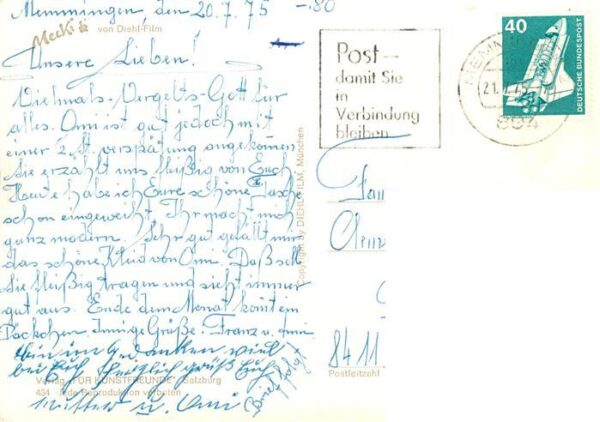 Memmingen den 20.7.75 -.80
Mecki
von Diehl-Film
Unsere Lieben!
Vielmals-Vergelts-Gott für
alles. Omi ist gut jedoch mit
einer 2. St verspätung angekommen
Sie erzählt uns fleißig von Euch
Heute habe ich Eure schöne Tasche
schon eingeweiht. Ihr macht mich
ganz modern. Sehr gut gefällt mir
das schöne Kleid von Omi. Das soll
Sie fleißig tragen und sieht immer
gut aus. Ende dem Monat kommt ein
Päckchen. Innige Grüße. Franz u.
bin im Gedanken viel
bei Euch herzlich grüß Euch
Mutter u. Omi
Brief folgt
Verlag "FÜR KUNSTFREUNDE" Salzburg
434 Jede Reproduktion verboten
Copyright by DIEHL-FILM, München
Post-
damit Sie
in
Verbindung
bleiben
MEMMIN
21.7.75
894
40
DEUTSCHE BUNDESPOST
Fam
8411
Postleitzahl